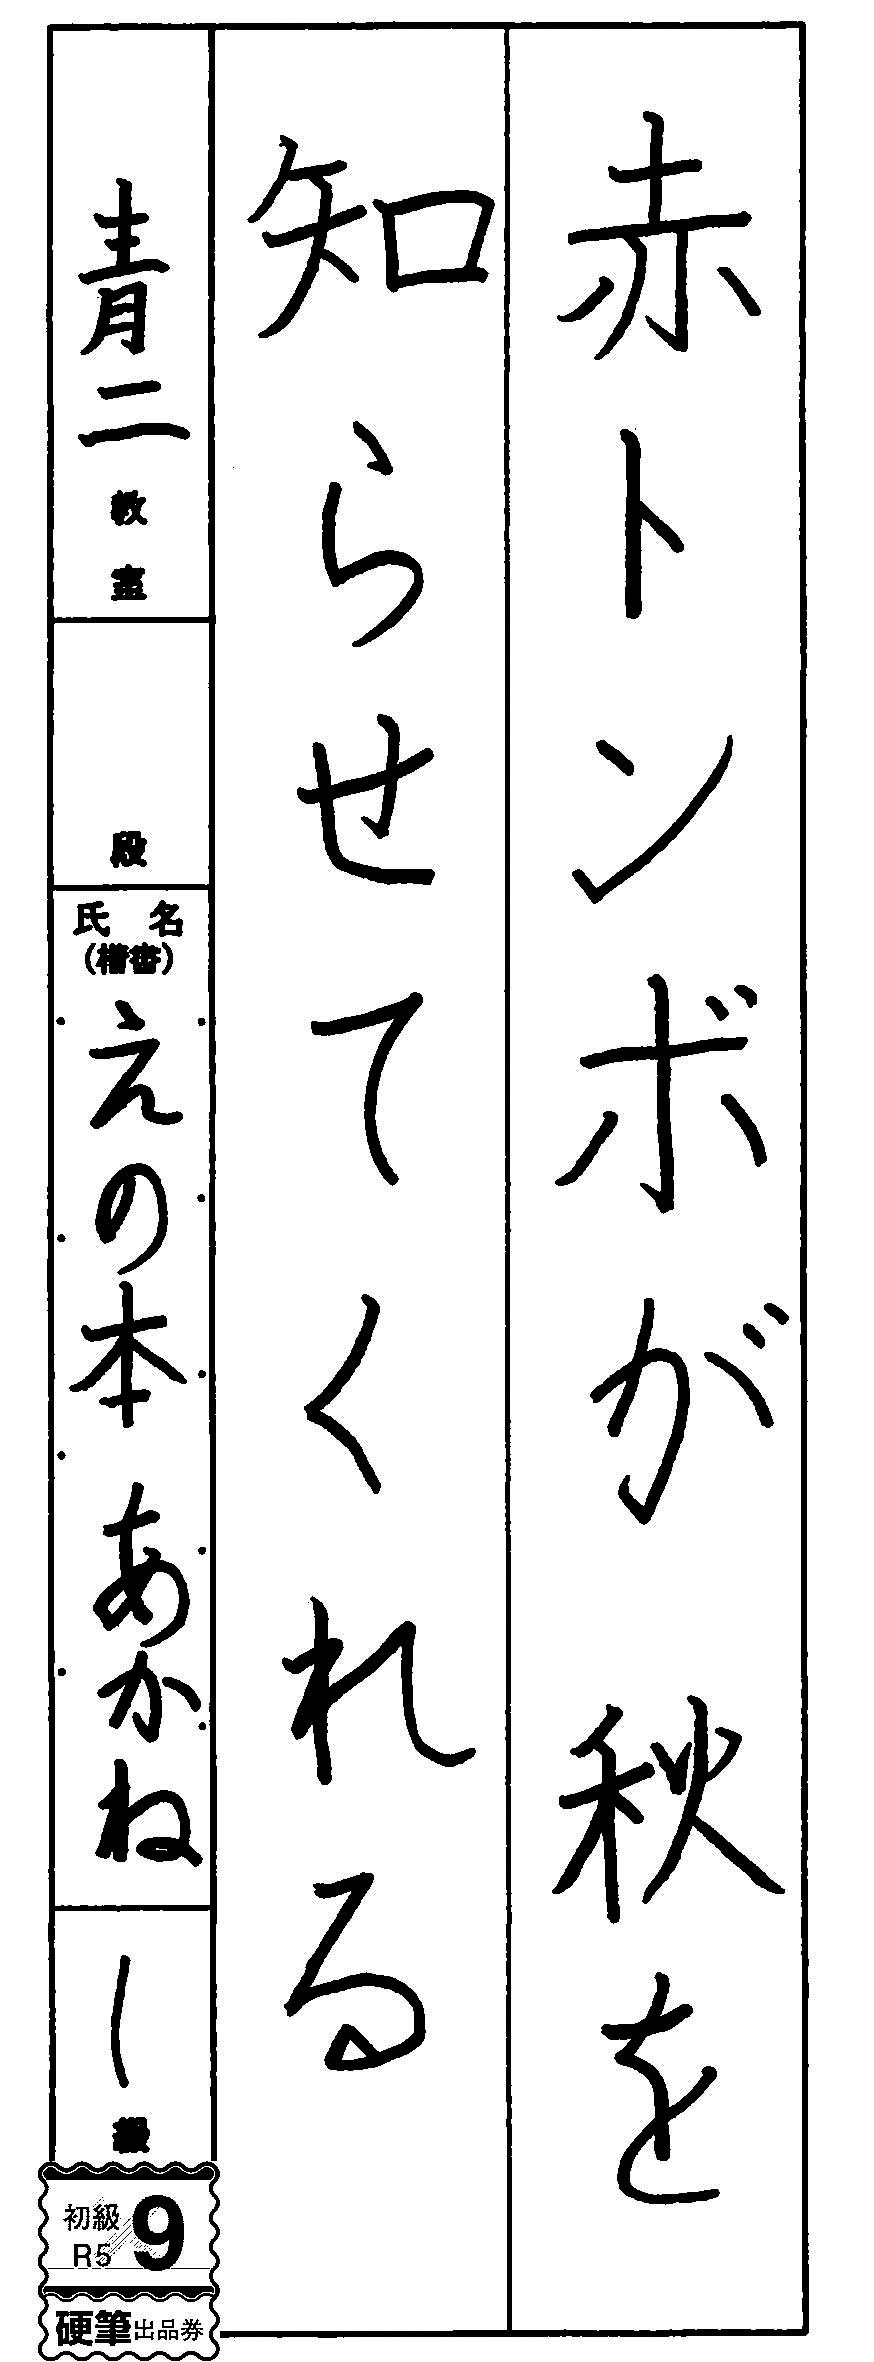 赤トンボが 秋を
知らせてくれる
青二教室
段
氏名
(楷書)
えの本 あかね
級
初級
R5
9
硬筆出品券